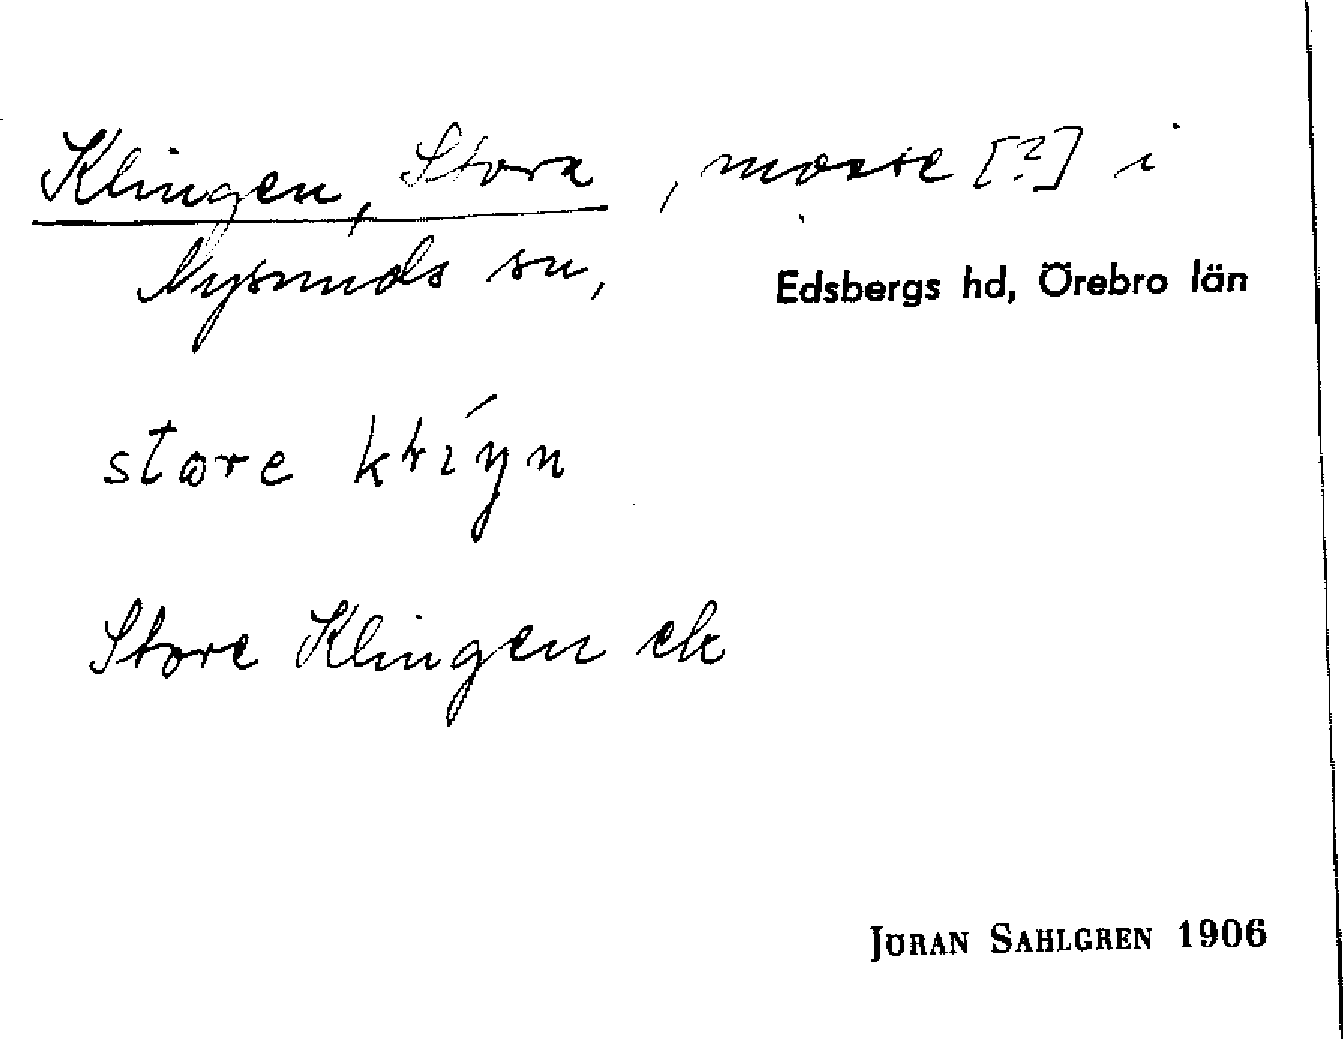 Klingen, Stora, mosse [?] i
Nysunds sn, Edsbergs hd, Örebro län
store
Store Klingen ek
JÖRAN SAHLGREN 1906